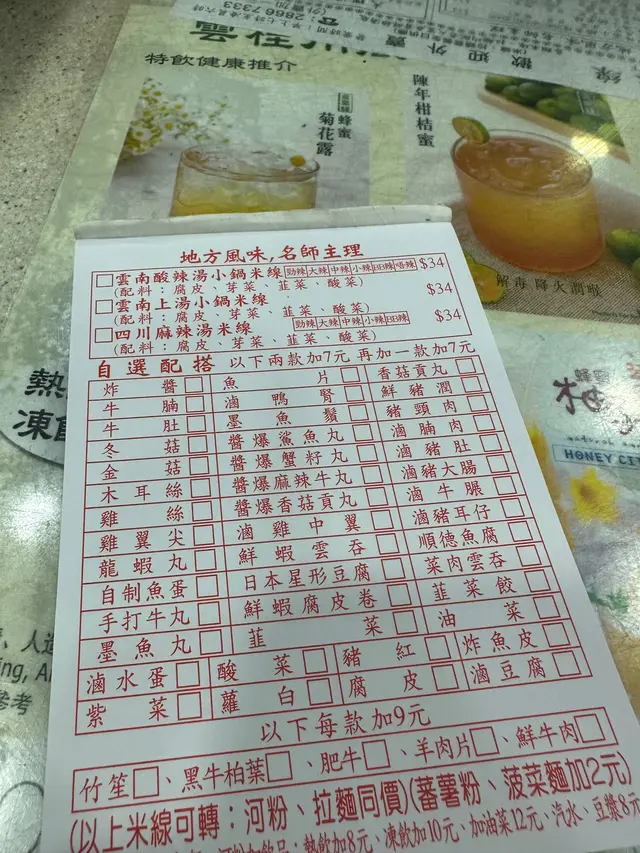 電話：28667333
歡迎外賣
特飲健康推介
蜂蜜
菊花露
陳年柑桔蜜
解毒降火潤喉
HONEY CIT
地方風味,名師主理
□雲南酸辣湯小鍋米線 勁辣 大辣 中辣 小辣 BB辣 唔辣 $34
(配料：腐皮、芽菜、韮菜、酸菜)
□雲南上湯小鍋米線 $34
(配料：腐皮、芽菜、韮菜、酸菜)
□四川麻辣湯米線 勁辣 大辣 中辣 小辣 BB辣 $34
(配料：腐皮、芽菜、韮菜、酸菜)
自選配搭 以下兩款加7元 再加一款加7元
炸醬□ 魚片□ 香菇貢丸□
牛腩□ 滷鴨腎□ 鮮豬潤□
牛肚□ 墨魚鬚□ 豬頸肉□
冬菇□ 醬爆鯊魚丸□ 滷腩肉□
金菇□ 醬爆蟹籽丸□ 滷豬肚□
木耳絲□ 醬爆麻辣牛丸□ 滷豬大腸□
雞絲□ 醬爆香菇貢丸□ 滷牛𦟌□
雞翼尖□ 滷雞中翼□ 滷豬耳仔□
龍蝦丸□ 鮮蝦雲吞□ 順德魚腐□
自制魚蛋□ 日本星形豆腐□ 菜肉雲吞□
手打牛丸□ 鮮蝦腐皮卷□ 韮菜餃□
墨魚丸□ 韮菜□ 油菜□
滷水蛋□ 酸菜□ 豬紅□ 炸魚皮□
紫菜□ 蘿白□ 腐皮□ 滷豆腐□
以下每款加9元
竹笙□、黑牛柏葉□、肥牛□、羊肉片□、鮮牛肉□
(以上米線可轉：河粉、拉麵同價)(蕃薯粉、菠菜麵加2元)
加飲品：熱飲加8元、凍飲加10元、加油菜12元、汽水、豆漿8元